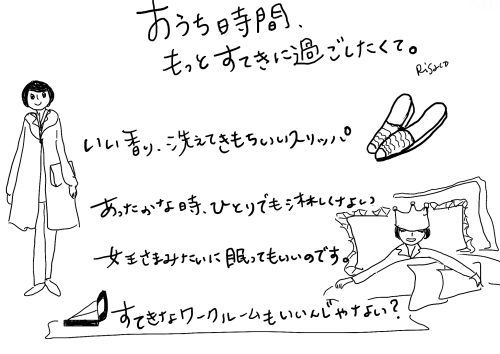 おうち時間、
もっとすてきに過ごしたくて。
Risaco
いい香り、洗えてきもちいいスリッパ。
あったかな時、ひとりでも淋しくない
女王さまみたいに眠ってもいいのです。
すてきなワークルームもいいんじゃない?